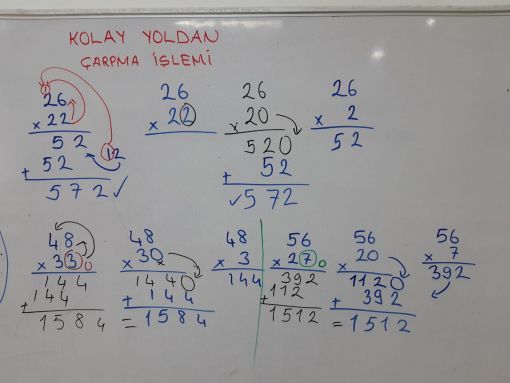 KOLAY YOLDAN
ÇARPMA İŞLEMİ
1
26
x 22
52
12
+ 52
572 ✓
26
x 22
26
x 20
520
+ 52
✓ 572
26
x 2
52
48
x 33 0
144
+ 144
1584
48
x 30
1440
+ 144
= 1584
48
x 3
144
56
x 27 0
392
+ 112
1512
56
x 20
1120
+ 392
= 1512
56
x 7
392